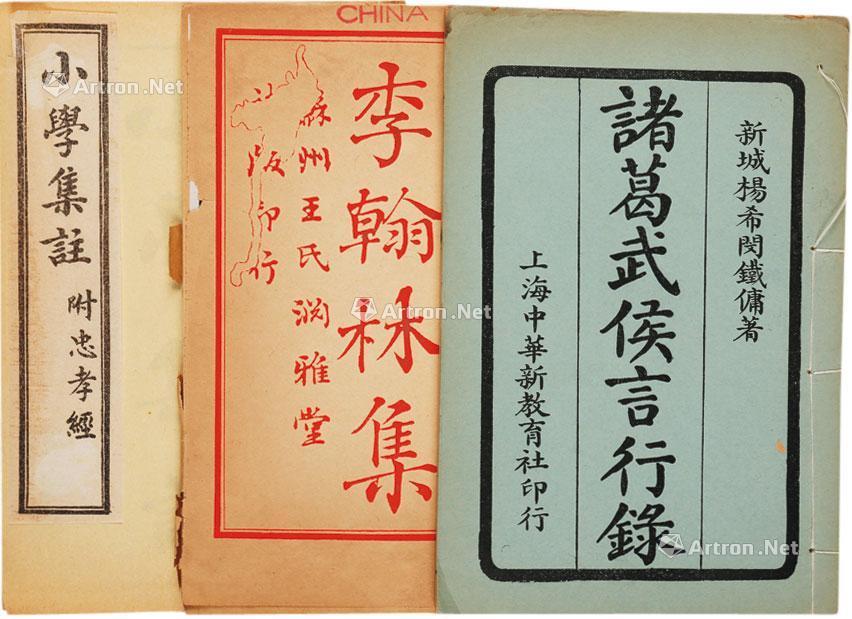 小學集註
附忠孝經
CHINA
李翰林集
蘇州王氏渊雅堂
版印行
新城楊希閔鐵傭著
諸葛武侯言行錄
上海中華新教育社印行
Artron.Net
Artron.Net
Artron.Net
Artron.Net
Artron.Net
Artron.Net
Artron.Net